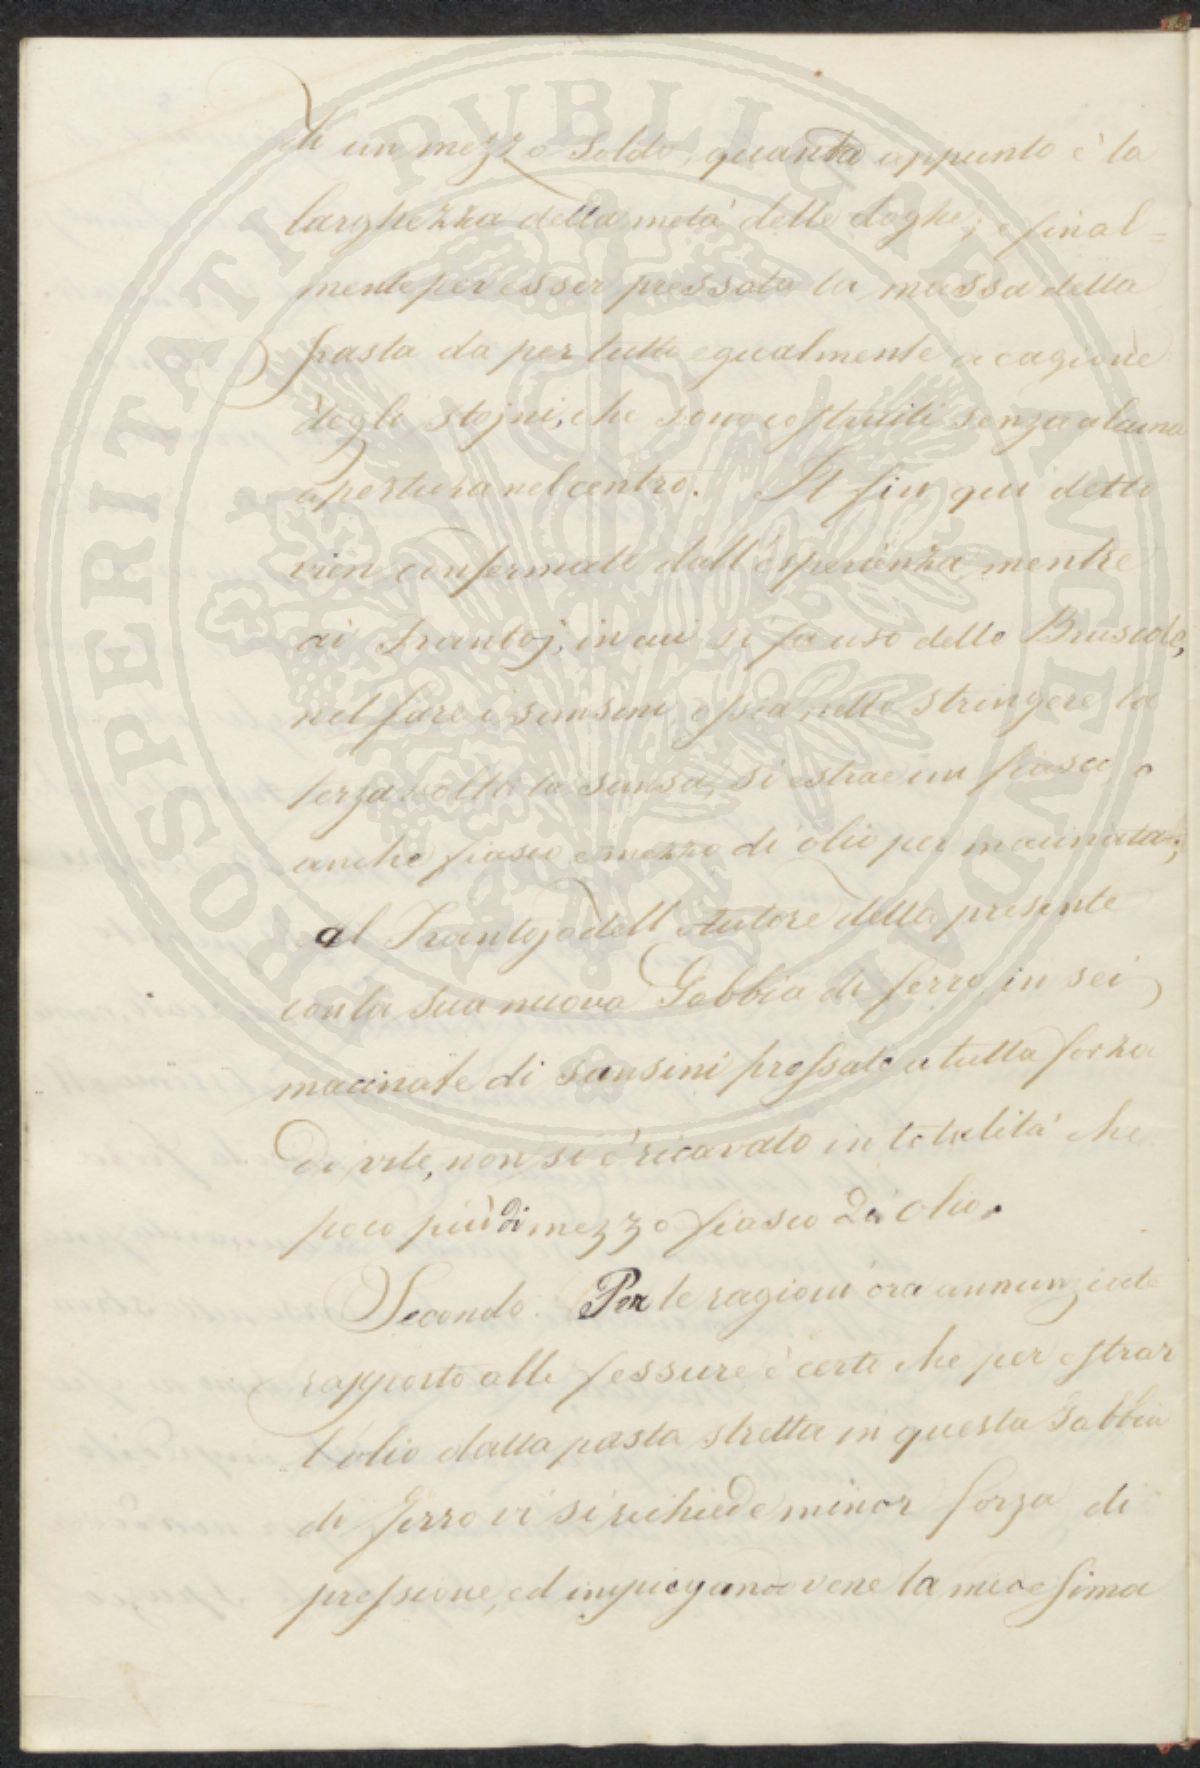 di un mezzo soldo, quanta appunto è la
larghezza della metà delle doghe; e final=
mente per esser pressata la massa della
pasta da per tutto egualmente a cagione
degli stojni, che sono costruiti senza alcuna
apertura nel centro. Il fin qui detto
vien confermato dall'esperienza, mentre
ai Frantoj, in cui si fa uso delle Bruscole,
nel fare i sansini, ossia nello stringere la
terza volta la sansa, si estrae un fiasco o
anche fiasco e mezzo di olio per macinata;
al Frantojo dell'Autore della presente
con la sua nuova Gabbia di ferro, in sei
macinate di sansini pressate a tutta forza
di vite, non si è ricavato in totalità che
poco più di mezzo fiasco di olio.
Secondo. Per le ragioni ora annunziate
rapporto alle fessure è certo che per estrar
l'olio dalla pasta stretta in questa Gabbia
di ferro vi si richiede minor forza di
pressione, ed impiegandovene la medesima
PROSPERITATI PUBLICAE AUGENDAE